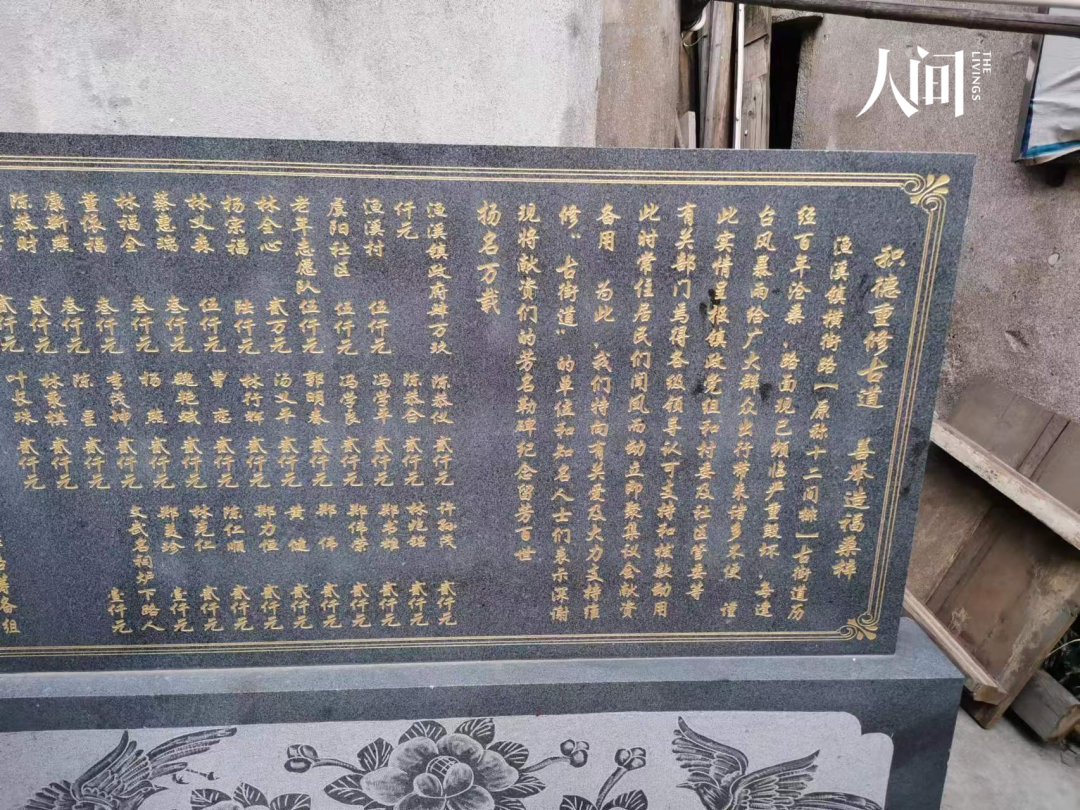 人间
THE LIVINGS
积德重修古道 善举造福桑梓
渔溪镇横街路【原称十二间排】古街道历
经百年沧桑、路面现已频临严重毁坏、每逢
台风暴雨给广大群众出行带来诸多不便 谨
此实情呈报镇政党组和村委及社区管委等
有关部门并得各级领导认可支持和拨款动用
此时常住居民们闻风而动立即聚集议会献资
备用 为此、我们特向有关爱及大力支持维
修“古街道”的单位和知名人士们表示深谢
现将献资们的芳名勒碑纪念留芳百世
扬名万载
渔溪镇政府肆万玖 陈恭仪 贰仟元 许孙茂 贰仟元
仟元 陈恭合 贰仟元 林兆铭 贰仟元
渔溪村 伍仟元 冯学平 贰仟元 郑书雄 贰仟元
虞阳社区 伍仟元 冯学良 贰仟元 郑伟荣 贰仟元
老年志愿队伍仟元 郭明春 贰仟元 郑伟 贰仟元
林金心 贰万元 汤义平 贰仟元 黄健 贰仟元
杨宗福 陆仟元 林行辉 贰仟元 郑力恒 贰仟元
林义森 伍仟元 曾恋 贰仟元 陈仁顺 贰仟元
蔡惠瑞 叁仟元 魏艳斌 贰仟元 林克仁 贰仟元
林福金 叁仟元 杨燕 贰仟元 郑美珍 壹仟元
董依福 叁仟元 李茂坤 贰仟元 文武名祠炉下路人
康斯燕 叁仟元 陈星 贰仟元 壹仟元
陈恭财 贰仟元 林景祺 贰仟元
贰仟元 叶长珠 贰仟元
备组